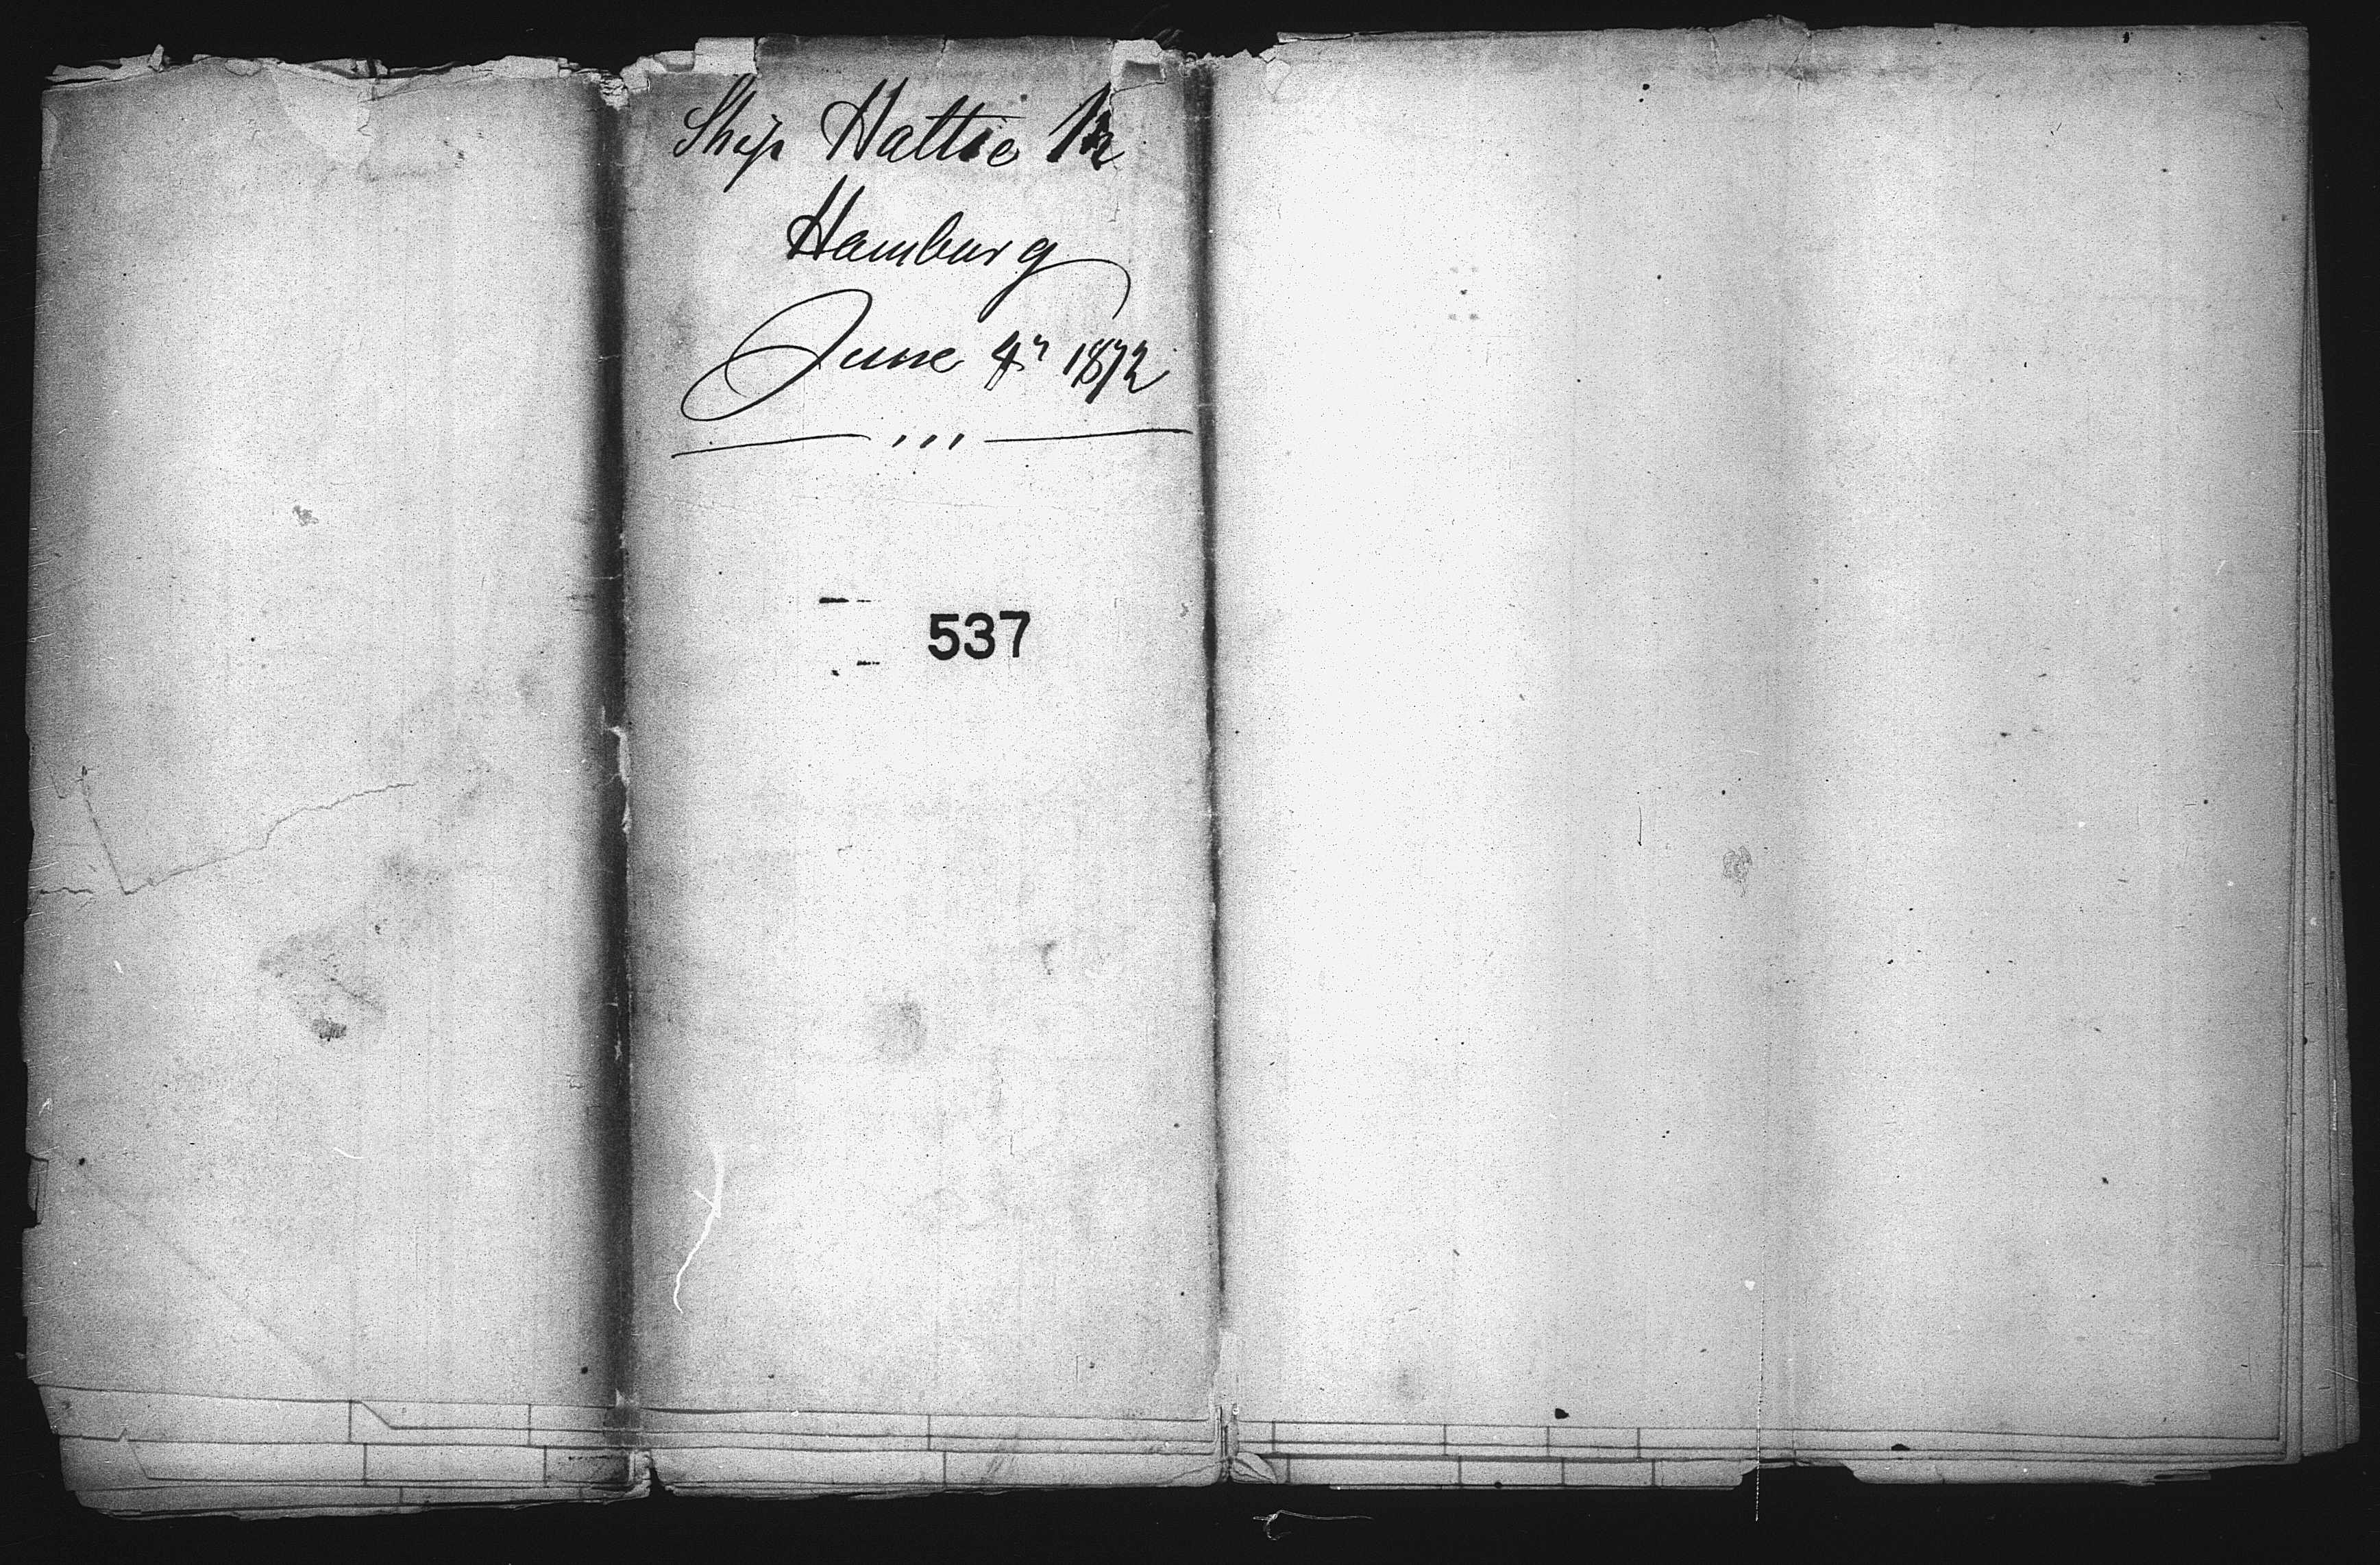 Ship Hattie M
Hamburg
June 4" 1872
537